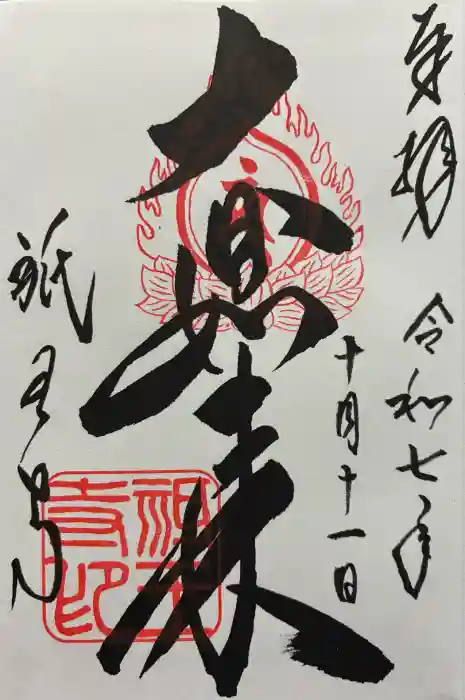 奉拝
令和七年
十月十一日
大日如来
祇王寺
祇王
寺印